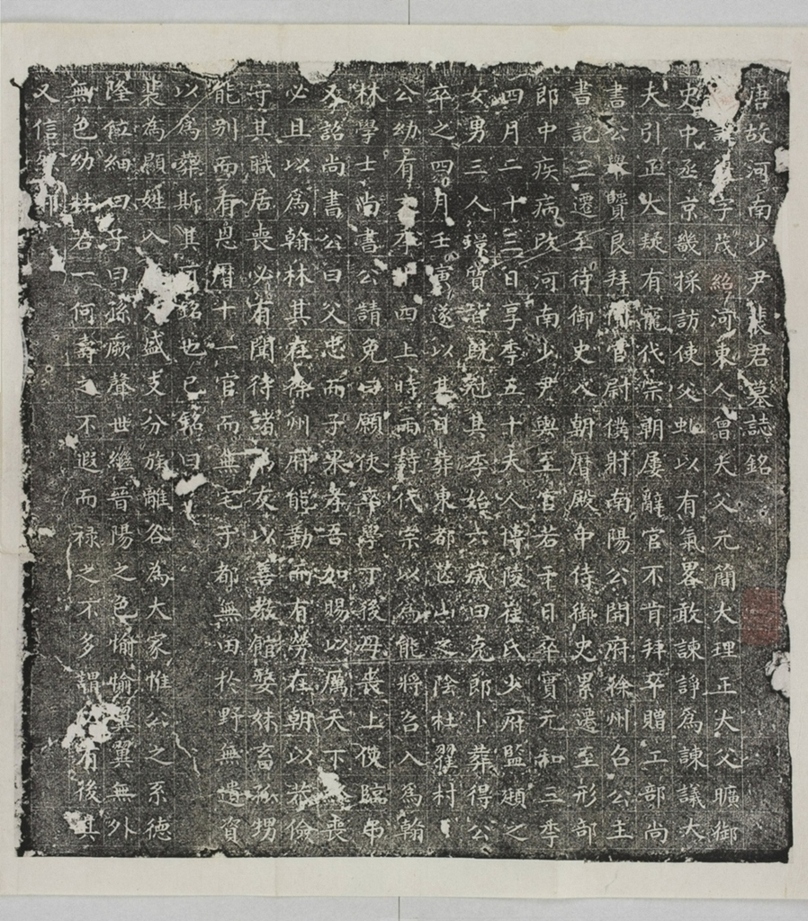 唐故河南少尹裴君墓誌銘
諱字茂紹河東人曾大父元簡大理正大父曠御
史中丞京畿採訪使父虯以有氣畧敢諫諍爲諫議大
夫引正大疑有寵代宗朝屢辭官不肯拜卒贈工部尚
書公舉賢良拜同官尉僕射南陽公開府徐州召公主
書記三遷至侍御史入朝曆殿中侍御史累遷至刑部
郎中疾病改河南少尹輿至官若干日卒實元和三季
四月二十三日享季五十夫人博陵崔氏少府監頲之
女男三人璟質皆既冠其季始六歲曰充郎卜葬得公
卒之四月壬寅遂以其日葬東都芒山之陰杜翟村
公幼有文四上時雨詩代宗以爲能將召入爲翰
林學士尚書公請免曰願使卒學丁後母喪上使臨弔
又詔尚書公曰父忠而子果孝吾加賜以厲天下喪
必且以爲翰林其在徐州府能勤而有勞在朝以恭儉
守其職居喪必有聞待諸弟友以善教館嫠妹畜孤甥
能別而有恩曆十一官而無宅于都無田於野無遺資
以爲葬斯其可銘也已銘曰
裴為顯姓入盛支分族離各為大家惟公之系德
隆位細曰子曰孫厥聲世繼晉陽之色愉愉翼翼無外
無色幼壯若一何壽之不遐而禄之不多謂有後其
又信